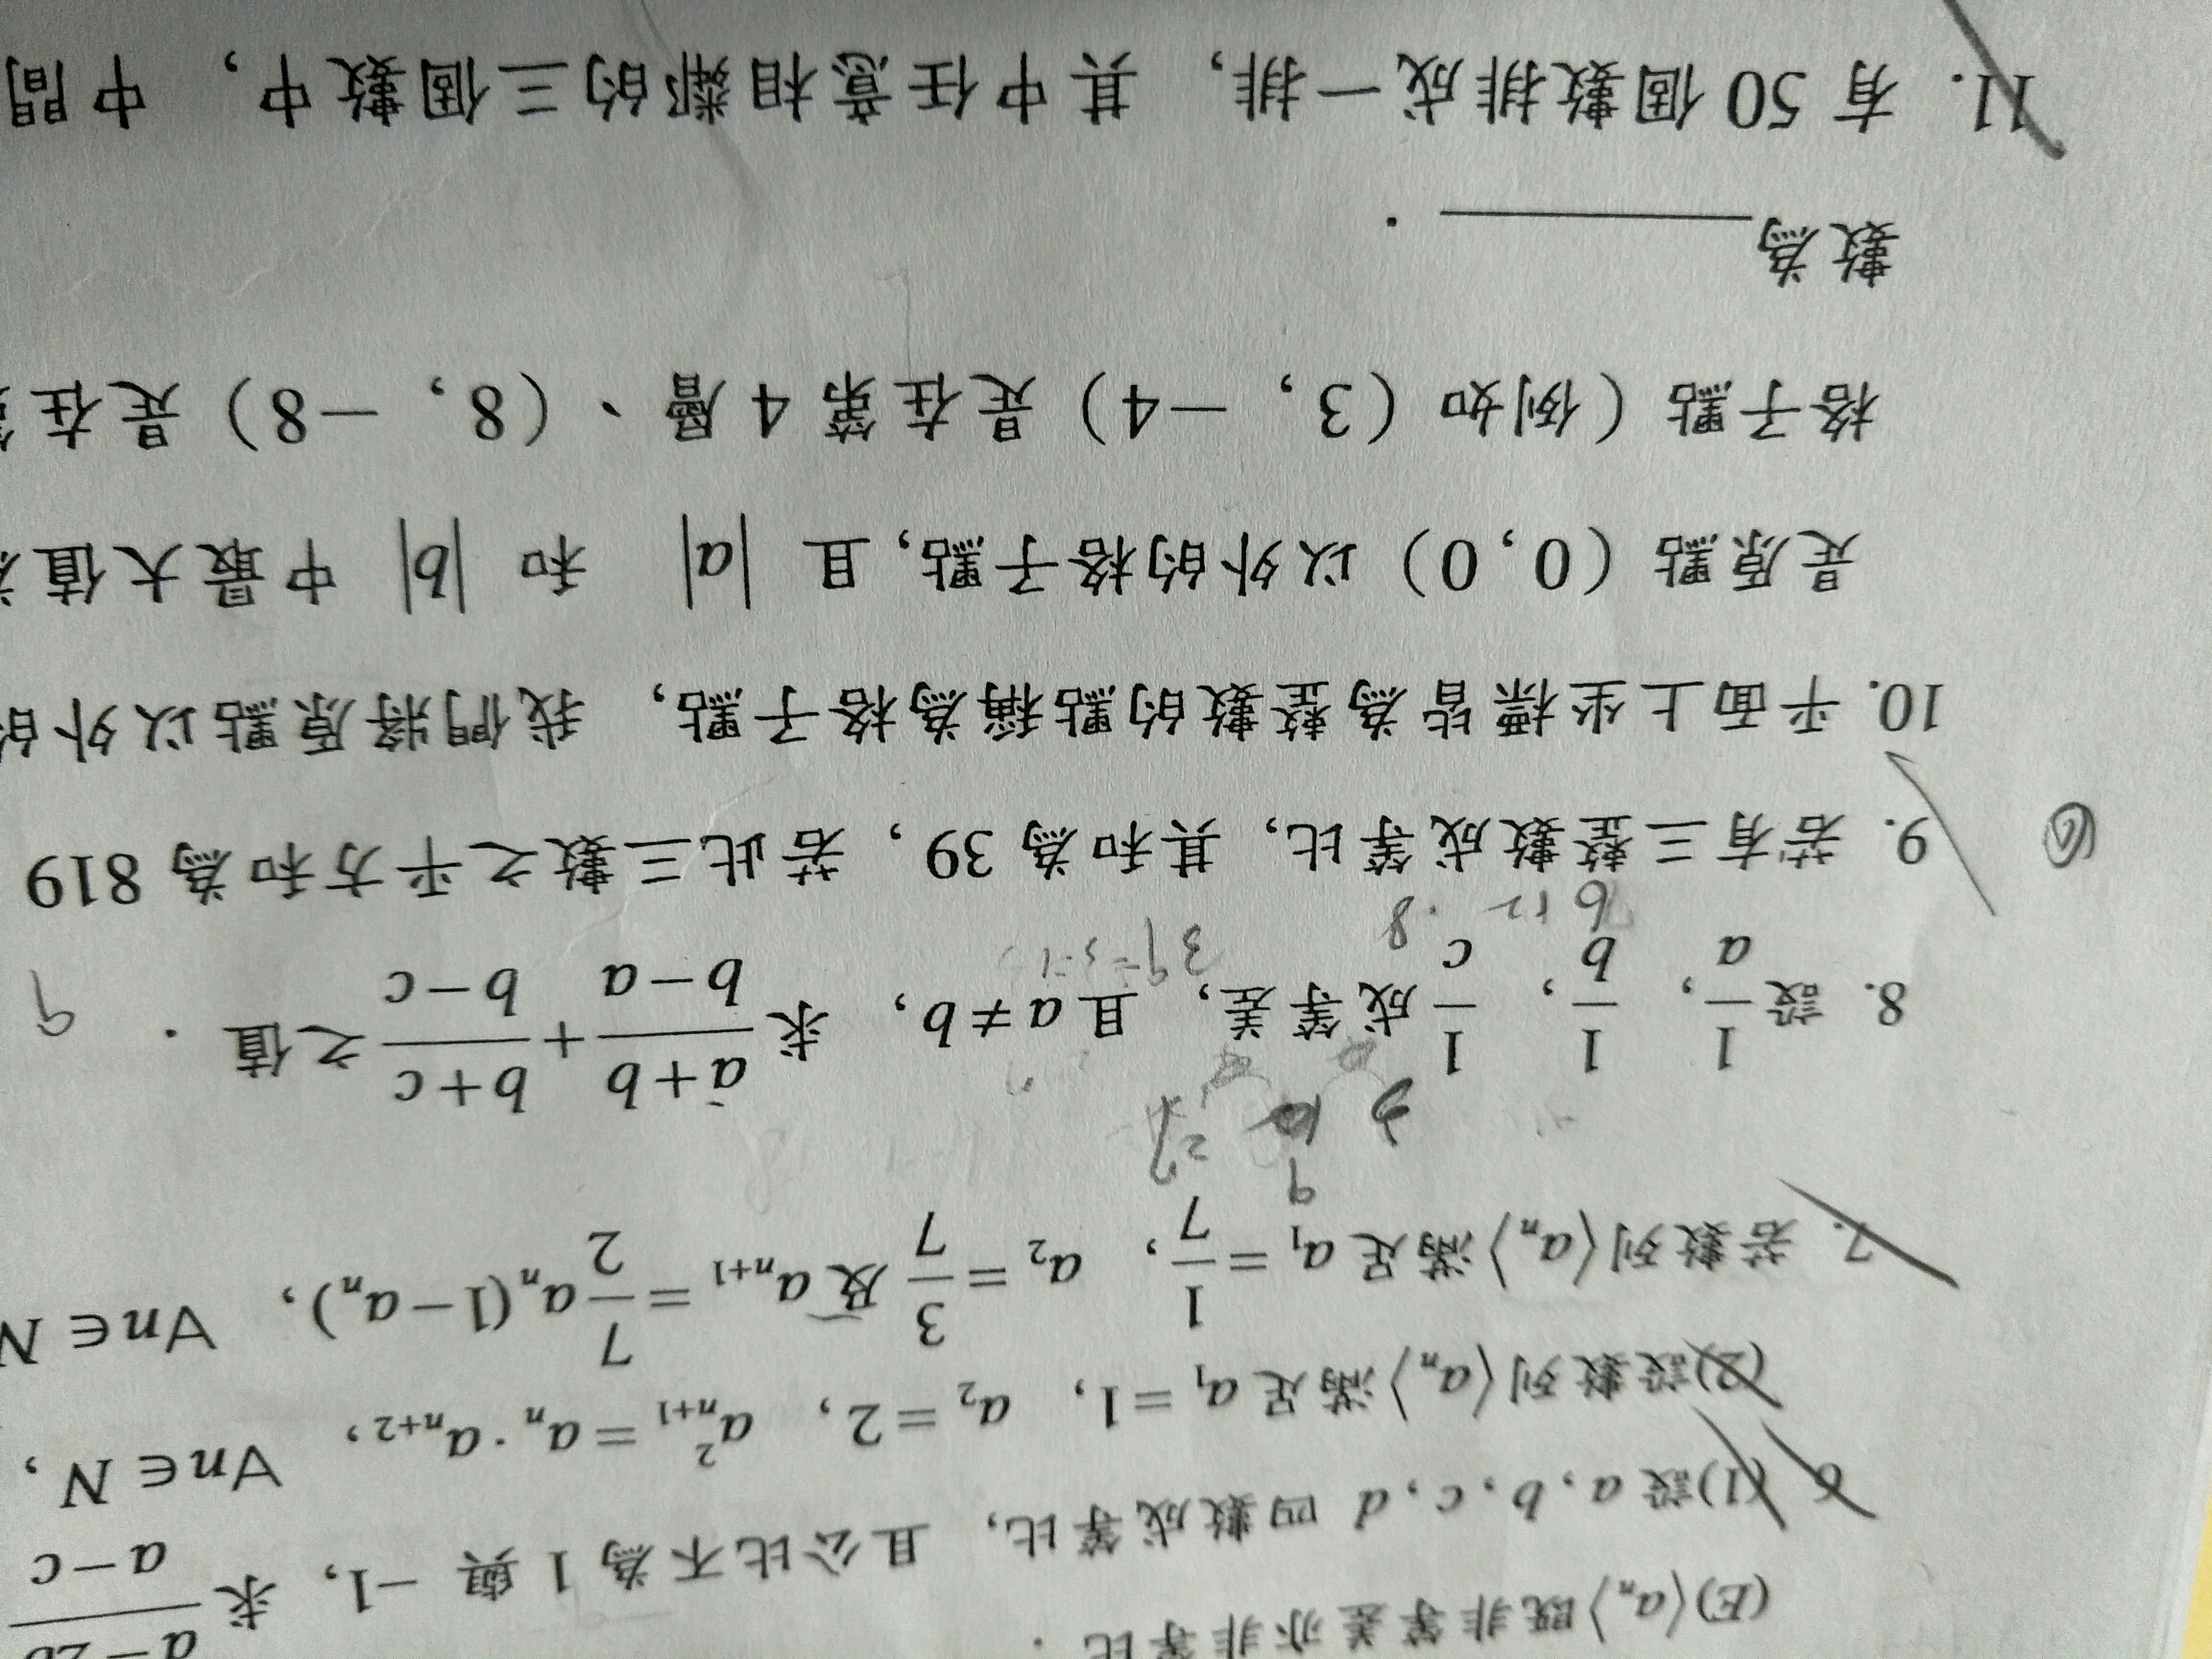 (E)⟨aₙ⟩既非等差亦非等比．
6 (1)設 a、b、c、d 四數成等比，且公比不為 1 與 −1，求 a−2b / a−c
(2)設數列⟨aₙ⟩滿足 a₁＝1，a₂＝2，a²ₙ₊₁＝aₙ·aₙ₊₂，∀n∈N，
7. 若數列⟨aₙ⟩滿足 a₁＝1/7，a₂＝3/7 及 aₙ₊₁＝7/2 aₙ(1−aₙ)，∀n∈N
8. 設 1/a，1/b，1/c 成等差，且 a≠b，求 (a+b)/(b−a)＋(b+c)/(b−c) 之值．
9. 若有三整數成等比，其和為 39，若此三數之平方和為 819
10. 平面上坐標皆為整數的點稱為格子點，我們將原點以外的
是原點（0，0）以外的格子點，且 |a| 和 |b| 中最大值
格子點（例如（3，−4）是在第 4 層、（8，−8）是在
數為＿＿＿＿．
11. 有 50 個數排成一排，其中任意相鄰的三個數中，中間